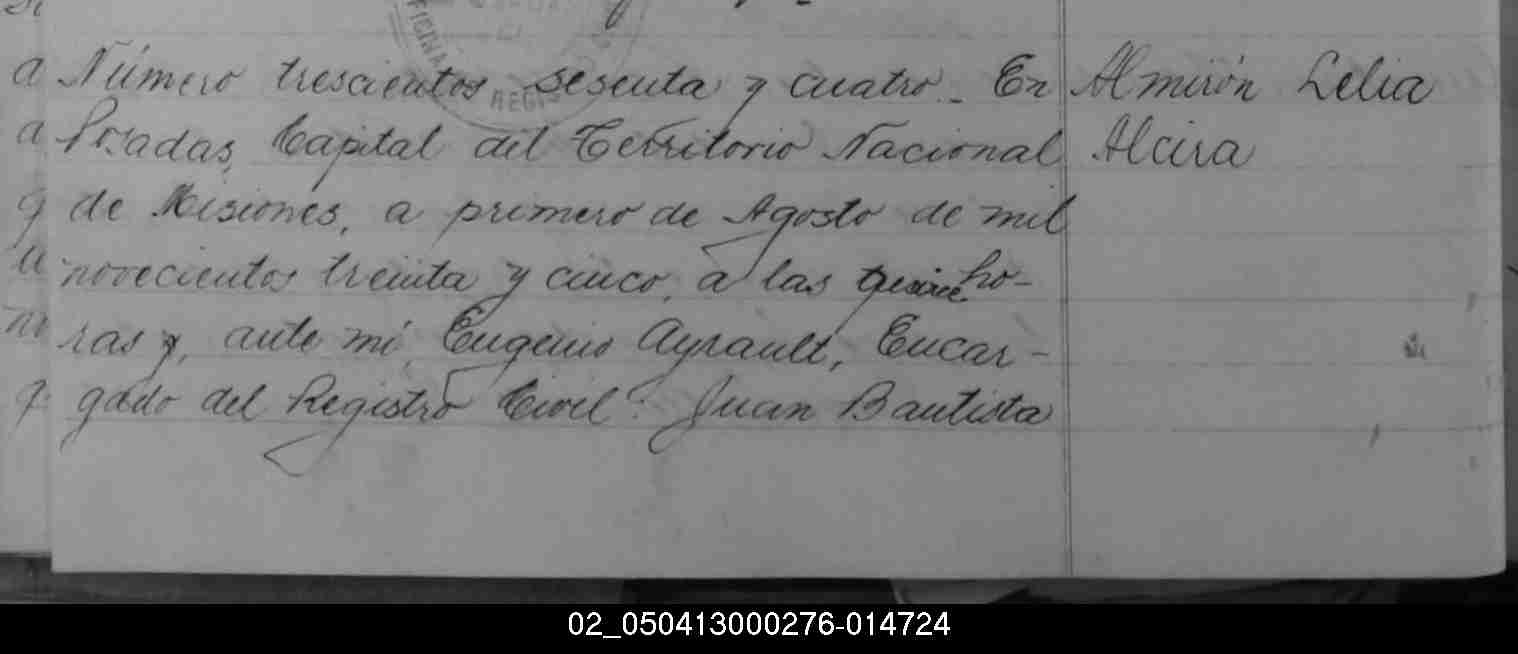 OFICINA
REGIS
Número trescientos sesenta y cuatro. En
Posadas, Capital del Territorio Nacional
de Misiones, a primero de Agosto de mil
novecientos treinta y cinco, a las quince ho-
ras y, ante mí Eugenio Ayrault, Encar-
gado del Registro Civil: Juan Bautista
Almirón Lelia
Alcira
02_050413000276-014724